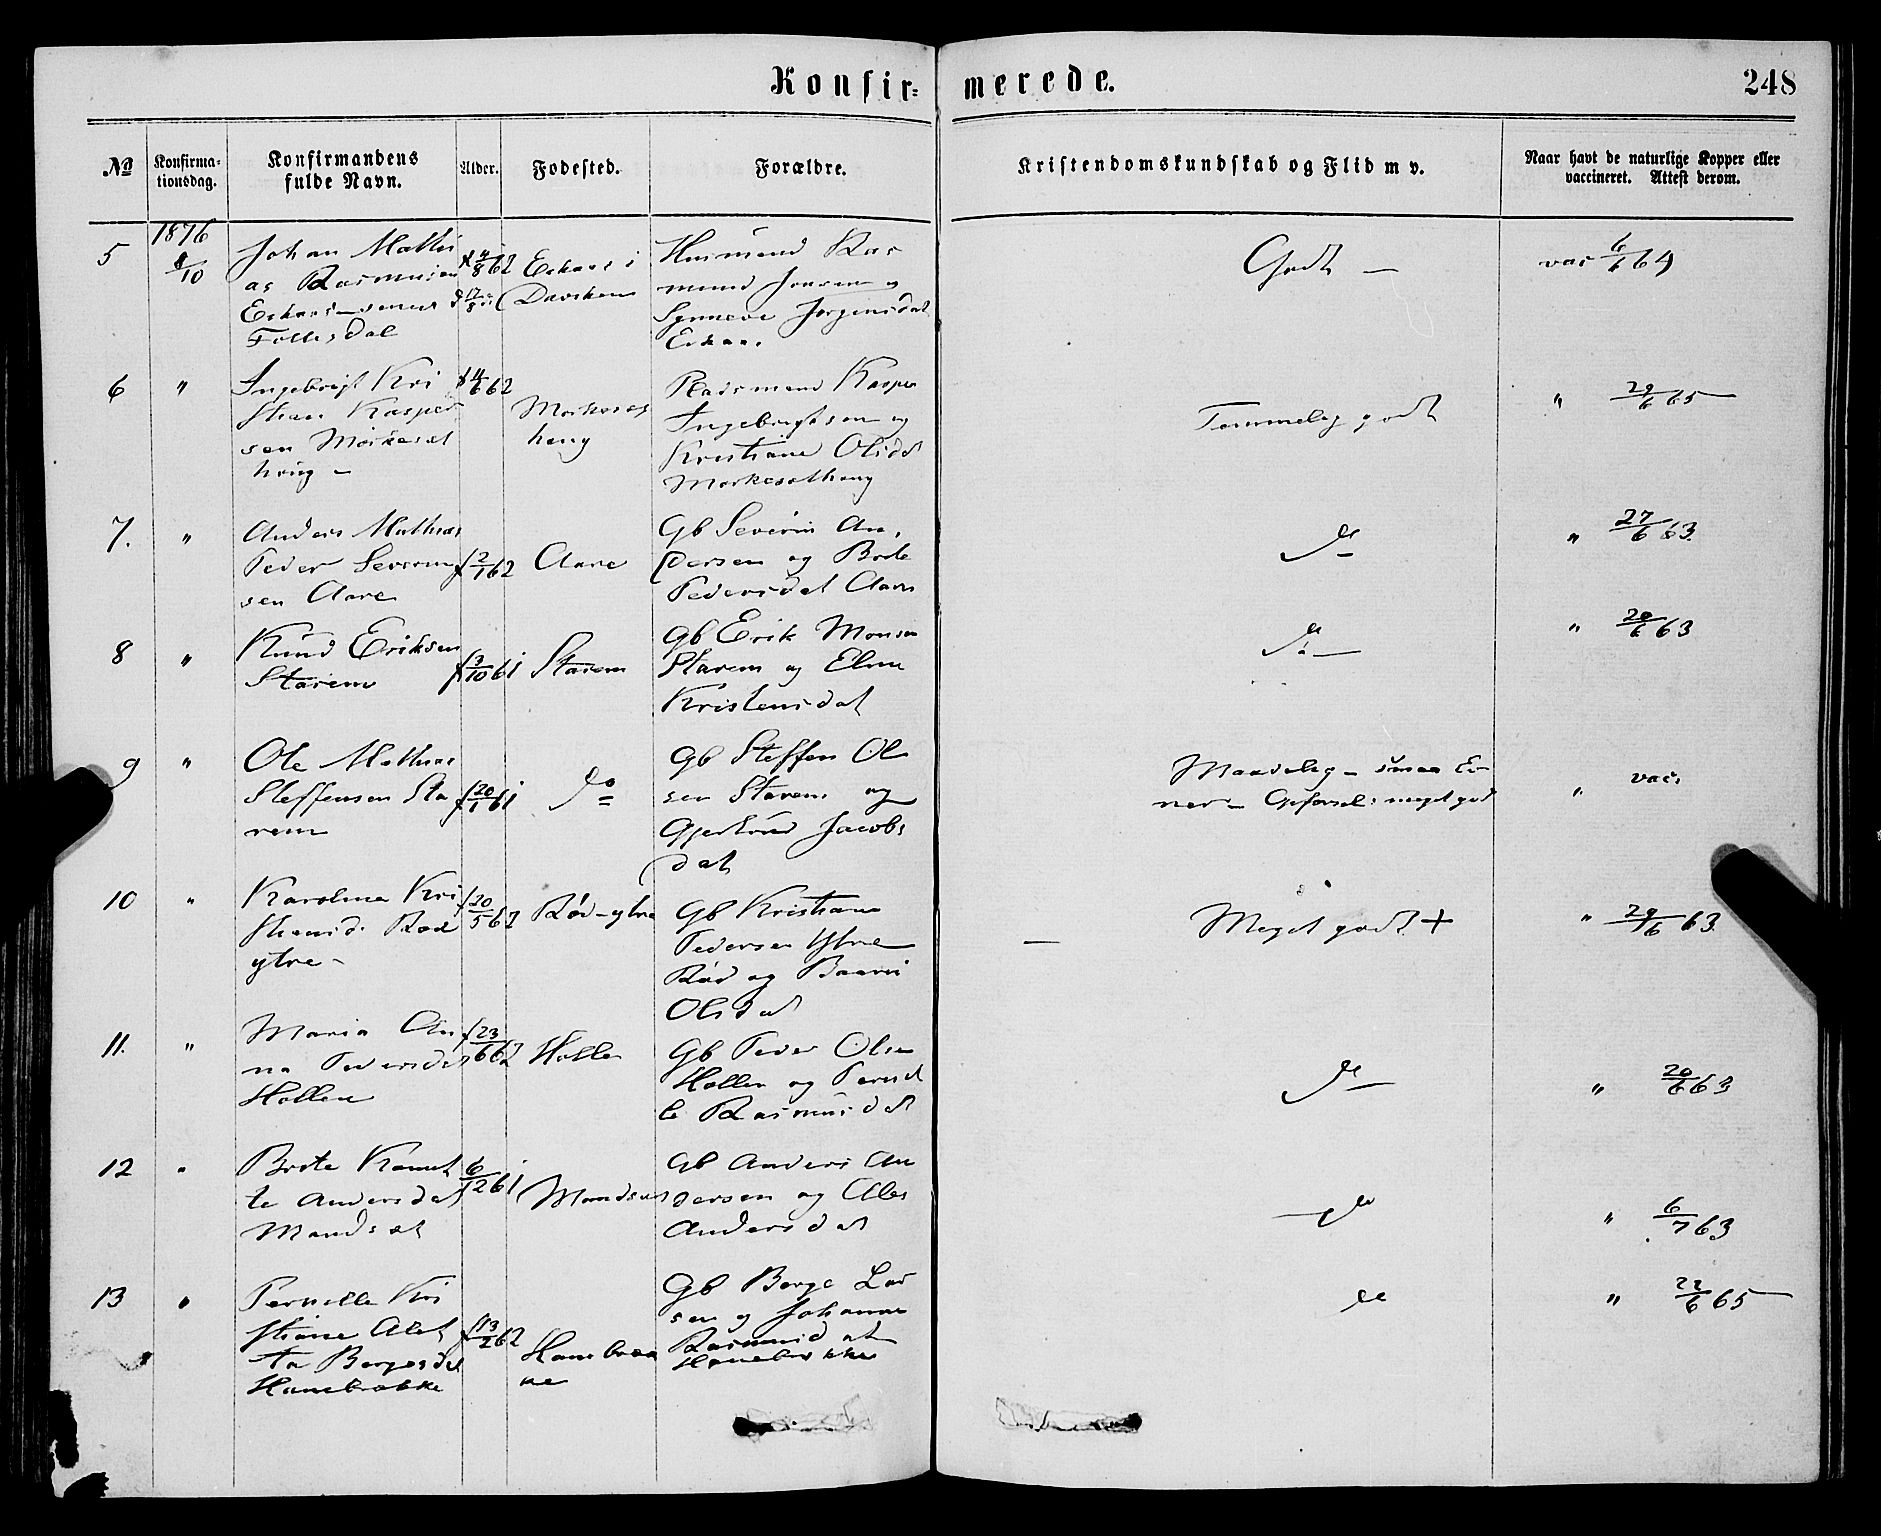 Konfir-merede.
248
No
Konfirma-
tionsdag.
Konfirmandens
fulde Navn.
Alder.
Fodested.
Forældre.
Kristendomskundskab og Flid m v.
Naar havt de naturlige Kopper eller
vaccineret. Attest derom.
1876
5
8/10
Johan Mathi
as Rasmusen
Follesdal
4/8 62
Husmand Ras
mund Jonsen og
Synneve Jørgensdat
Godt —
vac 6/6 64
6
"
Ingebrigt Kri
stian Kasper
sen Mørkeset
houg —
4/6 62
Morkeset
houg
Pladsmand Kasper
Ingebrigtsen og
Kristiane Olsd
Morkesethoug
Temmelig godt
" 29/6 65
7.
"
Anders Mathias
Peder Severin
sen Aare
f 2/1 62
Aare
Gb Severin An,
dersen og Brite
Pedersdat Aare
do
" 27/6 63.
8
"
Knud Eriksen
Starem
f 3/10 61
Starem
Gb Erik Monsen
Starem og Elen
Kristensdat
do —
" 20/6 63
9
"
Ole Mathias
Steffensen Sta
rem
f 20/1 61
do
Gb Steffen Ol
sen Starem og
Gjertrud Jacobs
dat
Maadelig — smaa Ev-
ner — Opførsel: meget god
" vac:
10
"
Karolina Kri
stiansd. Rød
ytre —
f 20/5 62
Rød-ytre
Gb Kristian
Pedersen Ytre
Rød og Baarni
Olsdat
— Meget godt +
" 29/6 63.
11.
"
Maria An
na Pedersdat
Hollen
f 23/6 62
Hollen
Gb Peder Olsen
Hollen og Pernil
le Rasmusdat
do
" 20/6 63
12
"
Brite Kanut
te Andersdat
Mandsæt
6/12 61
Mandsæt
Gb Anders An
dersen og Ales
Andersdat
do
" 6/7 63
13
"
Pernille Kri
stiane Alet
ta Borgesdat
Hanebrække
f 13/2 62
Hanebræk
ke
Gb Børge Lar
sen og Johanne
Rasmusdat
Hanebrække
do
" 22/6 65